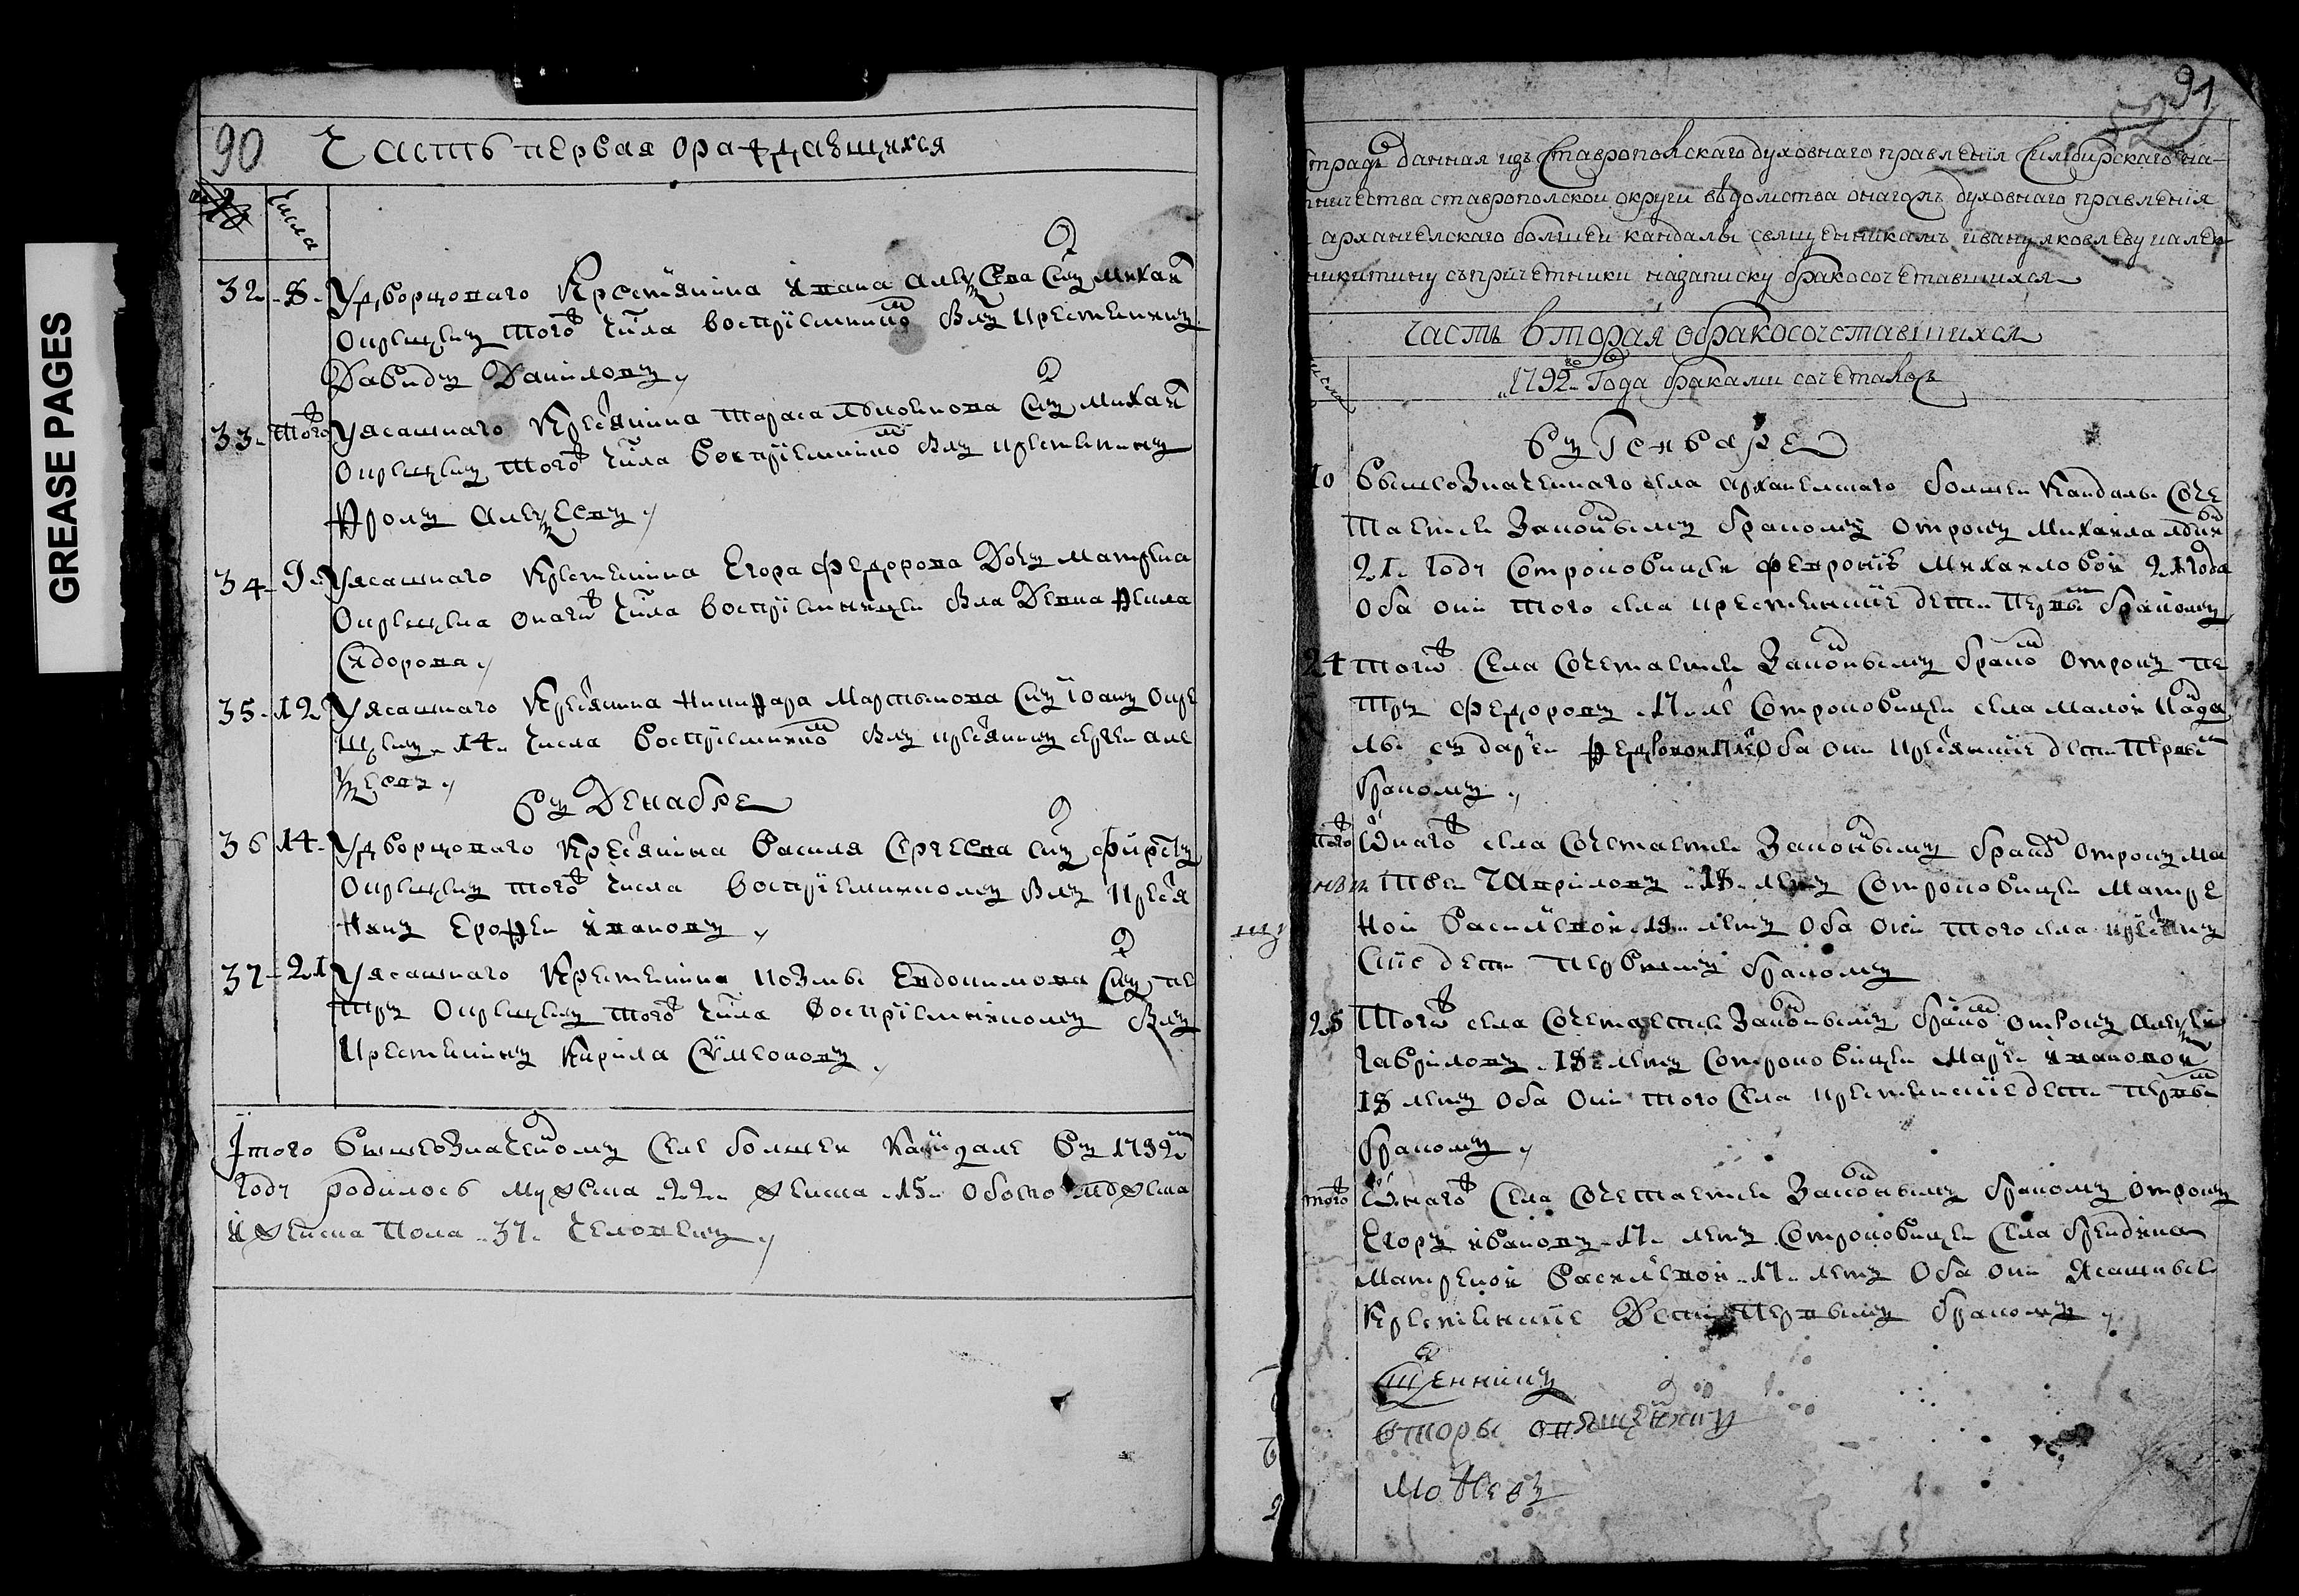 GREASE PAGES
90 Часть первая ораждавшихся
Числа
32. 8. У дворцоваго Крестьянина Ивана Алексеева Сынъ Михаи
Окрещенъ того числа воспрiемнико былъ крестьянинъ
Давидъ Даниловъ
33. того У ясашнаго Кресьянина Тараса Сынъ Михаи
Окрещенъ того числа воспрiемнико былъ крестьянинъ
Фролъ Алексеевъ
34. 9. У ясашнаго Крестьянина Егора Федорова Дочь Матрена
Окрещена онаго числа воспрiемницеи была Девка
Сидорова
35. 12 У ясашнаго Кресьянина Никифора Мартынова Сынъ Iоанъ Окре
щенъ 14. числа воспрiемнико былъ кресьянинъ Сергеи Але
ксеевъ
Въ Декабре
36 14. У дворцоваго Кресьянина Василя Сергеева Сынъ Фирсъ
Окрещенъ того числа воспрiемникомъ былъ кресья
нинъ Ерофеи Ивановъ
37. 21 У ясашнаго Крестьянина Козмы Евдокимова Сынъ Пе
тръ Окрещенъ того числа воспрiемникомъ былъ
Крестьянинъ Кирила Сѵмеоновъ
Итого вышеозначеномъ Селе болшеи Кандале Въ 1792м
годъ родилось мужеска 22. женска 15. обоего мужеска
и женска пола 37. человекъ
91
традь данная изъ Ставропольскаго духовнаго правленiя Симбирскаго на
ничества ставрополской округи вѣдомства онагожъ духовнаго правленiя
архангелскаго болшеи кандалы священникамъ ивану яковлеву иалек
никитину съпричетники назаписку бракосочетавшихся
часть вторая обракосочетавшихся
1792го Года браками сочеталось
Въ Генваре
10 Вышеозначеннаго села Архангелскаго болшеи Кандалы Соче
таетси Законнымъ бракомъ отрокъ Михаила
21. годъ Сотроковицеи Февронiѣ Михаиловой 21 года
оба они того села крестьянскiе дети первы бракомъ
24 того Села Сочетаетси Законнымъ брако отрокъ Пе
тръ Федоровъ 17. ле Сотроковицеи села малой Канда
лы съ Дарьеи оба они кресьянскiе дети первы
бракомъ
того Онаго села Сочетаетси Законнымъ брако отрокъ Ма
твеи Гавриловъ 18. летъ Сотроковицеи Матре
ной Василевой 19. летъ оба они того села
скiе дети первымъ бракомъ
28 Того села Сочетаетси Законнымъ брако отрокъ Алексеи
Гавриловъ 18 летъ Сотроковицеи Марьеи Ивановой
18 летъ оба они того Села крестьянскiе дети первы
бракомъ
того Онаго Села Сочетаетси Законнымъ бракомъ отрокъ
Егоръ Ивановъ 17. летъ Сотроковицеи Села брендина
Матреной Василевой 17. летъ оба они Ясашные
Крестьянскiе Дети Первымъ бракомъ